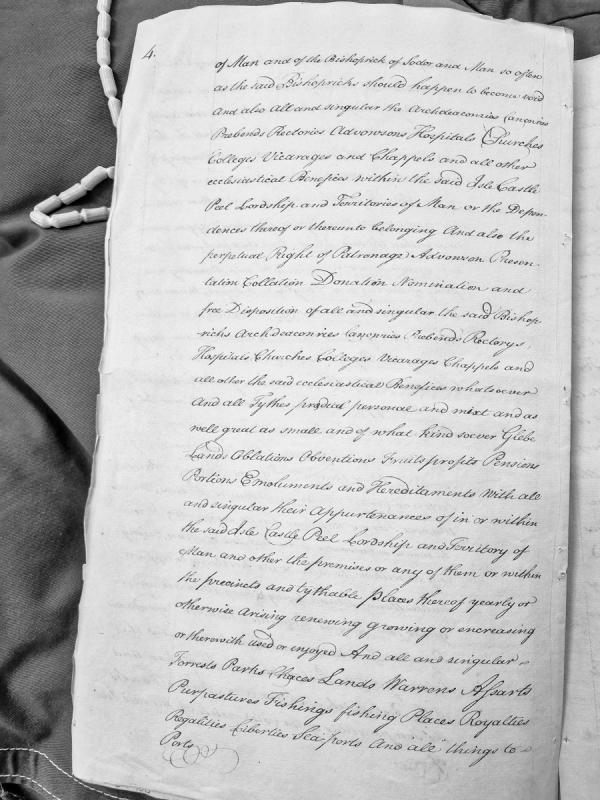 4.
of Man and of the Bishoprick of Sodor and Man so often
as the said Bishopricks should happen to become void
And also All and singular the Archdeaconries Canonries
Prebends Rectories Advowsons Hospitals Churches
Colleges Vicarages and Chappels and all other
ecclesiastical Benefices within the said Isle Castle
Peel Lordship and Territories of Man or the Depen-
dences thereof or thereunto belonging And also the
perpetual Right of Patronage Advowson Presen-
tation Collation Donation Nomination and
free Disposition of all and singular the said Bishop-
-ricks Archdeaconries Canonries Prebends Rectorys
Hospitals Churches Colleges Vicarages Chappels and
all other the said ecclesiastical Benefices whatsoever
And all Tythes predial personal and mixt and as
well great as small and of what kind soever Glebe
Lands Oblations Obventions Fruits profits Pensions
Portions Emoluments and Hereditaments With all
and singular their Appurtenances of in or within
the said Isle Castle Peel Lordship and Territory of
Man and other the premises or any of them or within
the precincts and tythable places thereof yearly or
otherwise arising renewing growing or encreasing
or therewith used or enjoyed And all and singular
Forrests Parks Chaces Lands Warrens Assarts
Purpastures Fishings fishing Places Royalties
Regalities Liberties Sea ports And all things to
Ports